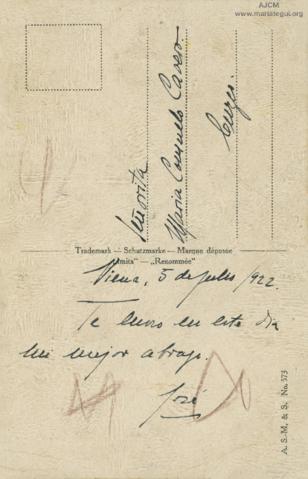 AJCM
www.mariategui.org
Señorita
Maria Consuelo Cavero
Trademark — Schutzmarke — Marque déposée
"Amita" — „Renommée"
Viena, 5 de julio /922.
Te envio en este dia
mi mejor abrazo.
José
A. S.-M. & S. No. 573